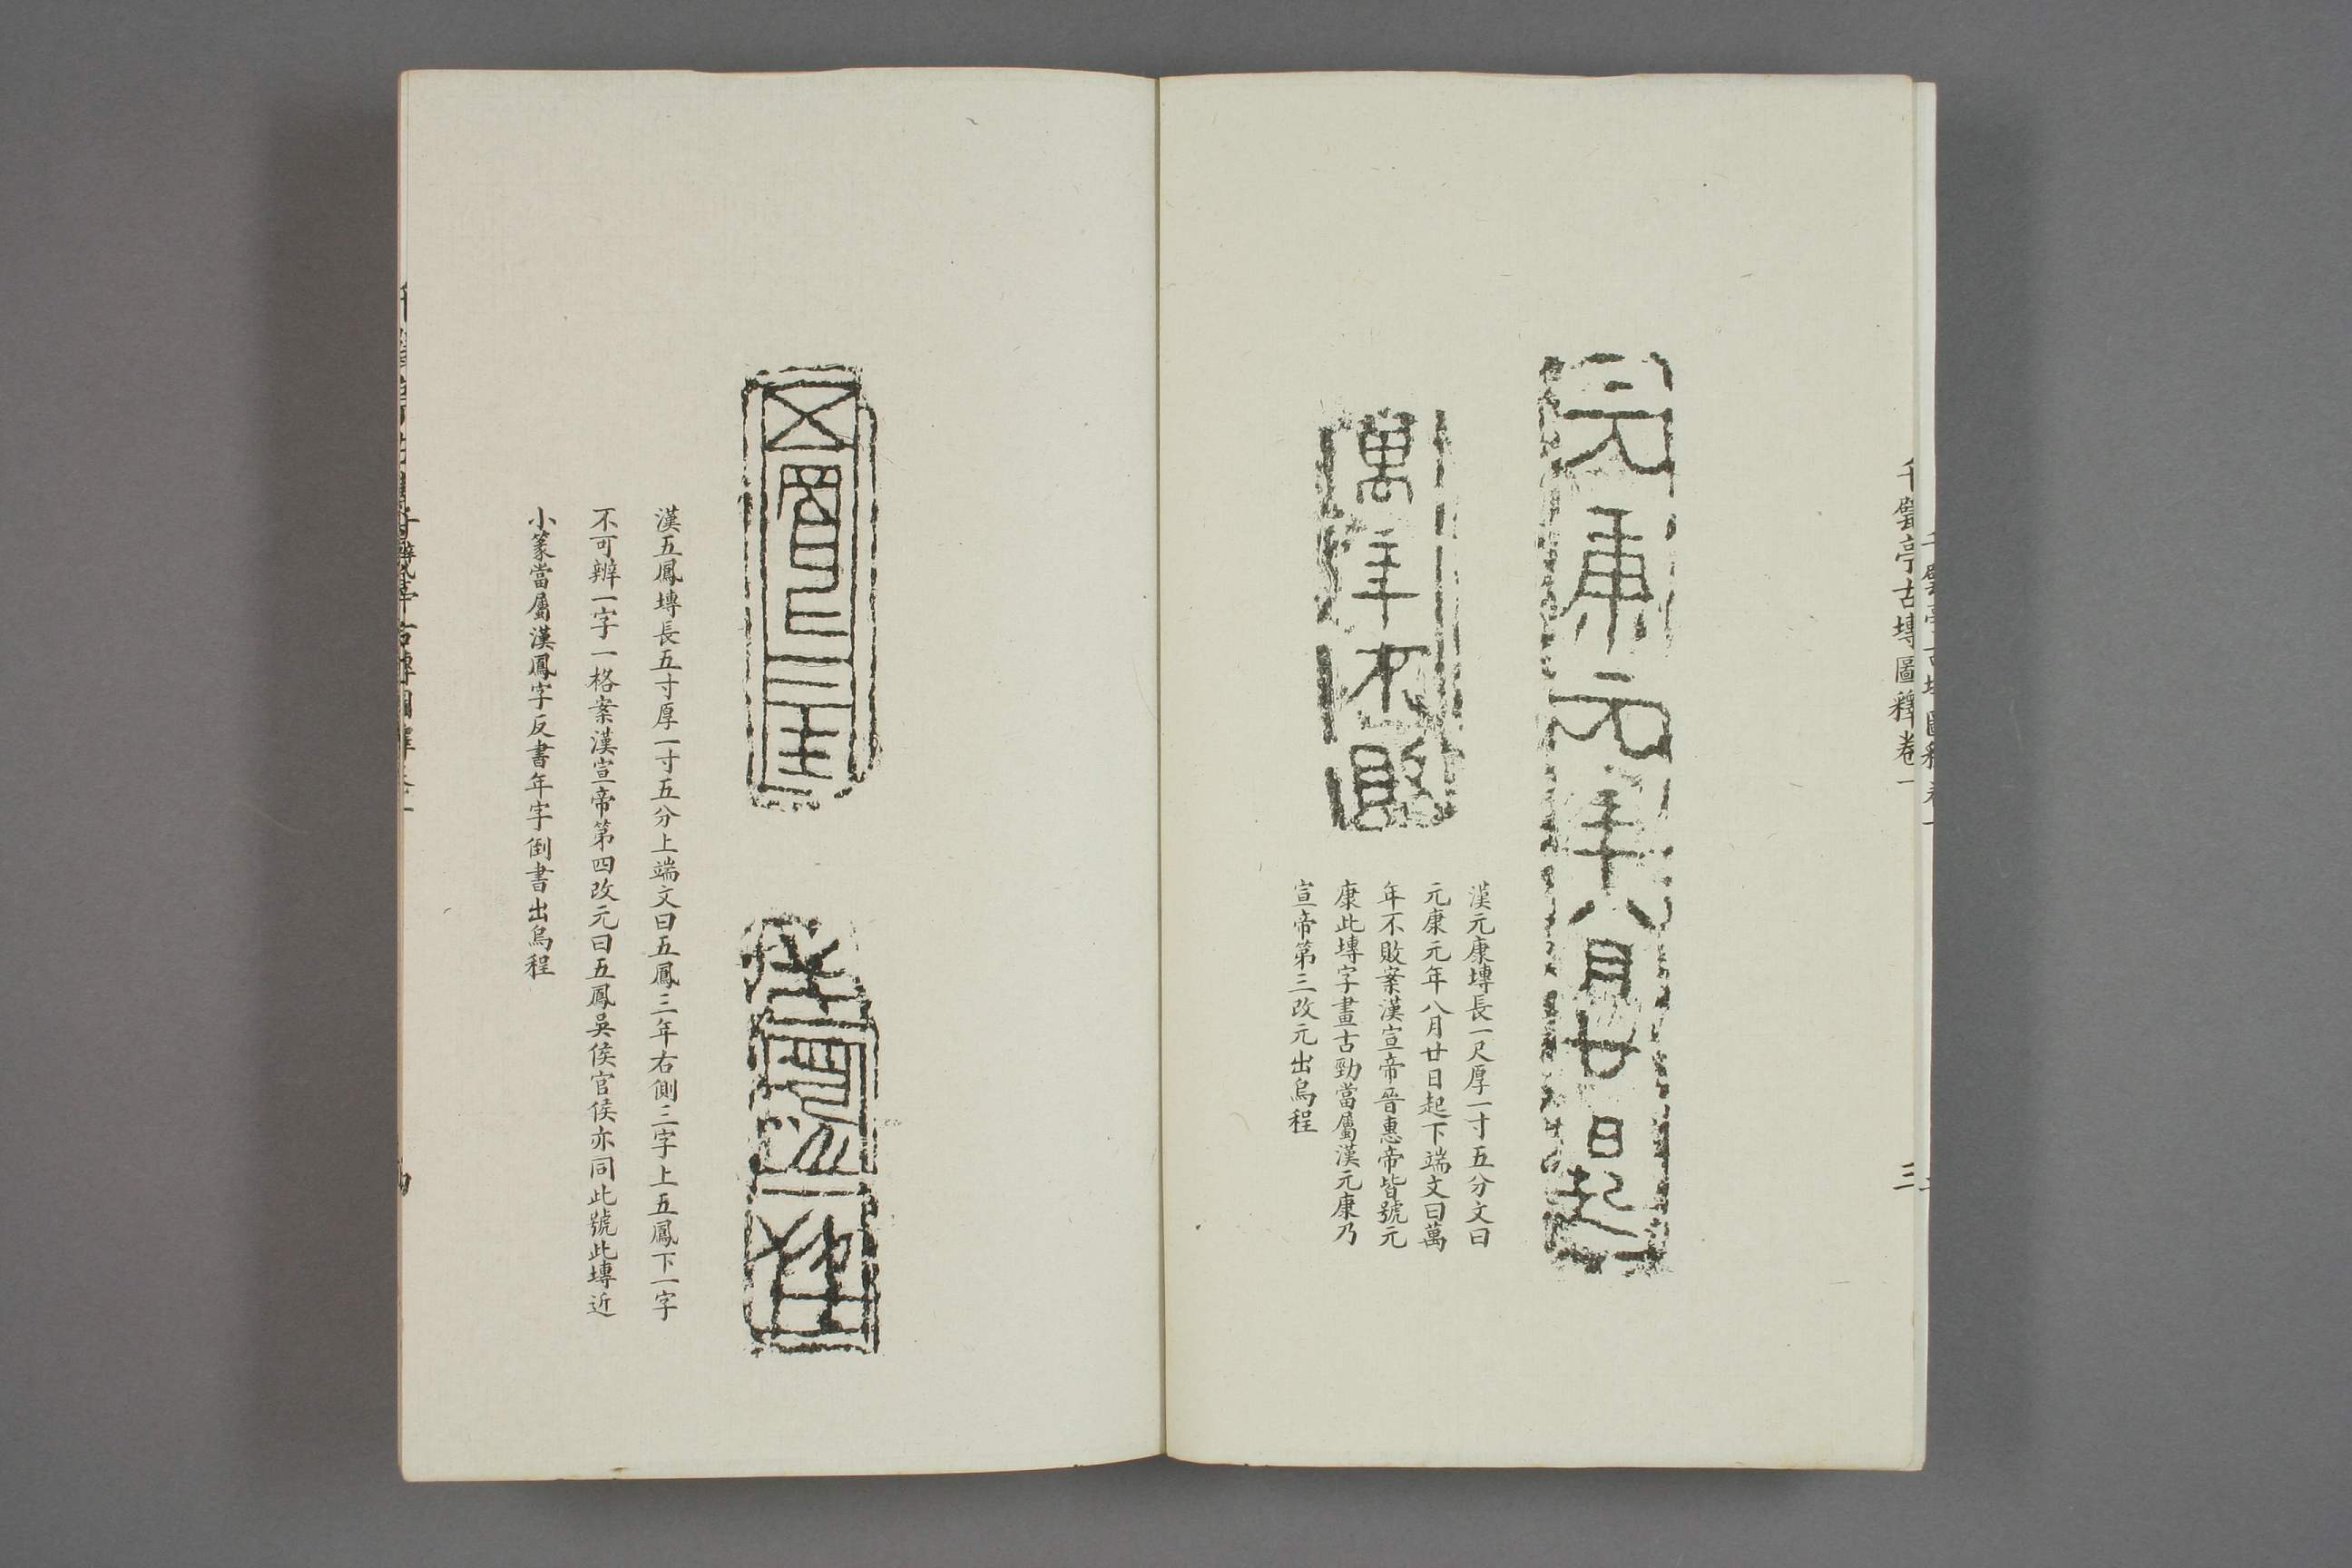 千甓亭古塼圖釋卷一
三
元康元年八月廿日起
萬年不敗
漢元康塼長一尺厚一寸五分文曰
元康元年八月廿日起下端文曰萬
年不敗案漢宣帝晉惠帝皆號元
康此塼字畫古勁當屬漢元康乃
宣帝第三改元出烏程
五鳳三年
漢五鳳塼長五寸厚一寸五分上端文曰五鳳三年右側三字上五鳳下一字
不可辨一字一格案漢宣帝第四改元曰五鳳吳侯官侯亦同此號此塼近
小篆當屬漢鳳字反書年字倒書出烏程